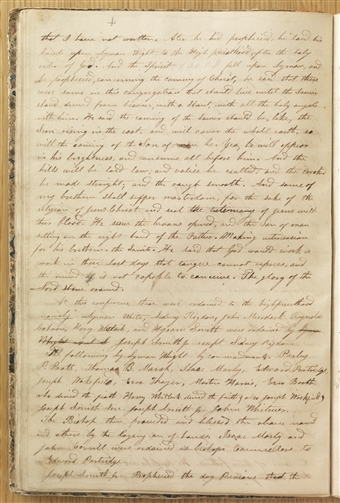 that I have not written. After he had prophesied he laid his
hands upon Lyman Wight to the High priesthood after the holy
order of God. And the Spirit fell upon Lyman, and
he prophesied, concerning the coming of Christ, he said that there
were some in this congregation that should live until the Savior
should descend from heaven, with a Shout, with all the holy angels
with him. He said the coming of the Savior should be, like, the
Sun rising in the east, and will cover the whole earth, so
will the coming of the Son of man be. Yea, he will appear
in his brightness, and consume all before him. And the
hills will be laid low, and valies be exalted, and the crooked
be made straight, and the rough smooth. And some of
my brethren shall suffer martyrdom, for the sake of the
religion of Jesus Christ, and seal the testimony of Jesus with
their blood. He saw the heavens opened, and the Son of man
sitting on the right hand of the Father, Making intercession
for his brethren, the Saints. He said that God would work a
work in these last days that tongue cannot express, and
the mind is not capable to conceive. The glory of the
Lord shone around.
At this conference these were ordained to the high priesthood
namely Lyman Wight, Sidney Rigdon, John Murdock, Reynolds
Cahoon, Harvy Whitlock, and Hyrum Smith were ordained by
Joseph Smith jr except Sidney Rigdon.
The following by Lyman Wight by commandment. Parley
P. Pratt, Thomas B. Marsh, Isaac Morley, Edward Partridge
Joseph Wakefield, Ezra Thayer, Martin Harris, Ezra Booth
who denied the faith Harvy Whitlock denied the faith, also Joseph Wakefield,
Joseph Smith Sen. Joseph Smith jr. John Whitmer.
The Bishop then proceeded and blessed the above named
and others by the laying on of hands. Isaac Morley and
John Corrill were ordained as bishops Counsellors to
Edward Partridge.
Joseph Smith jr. Prophesied the day previous that the